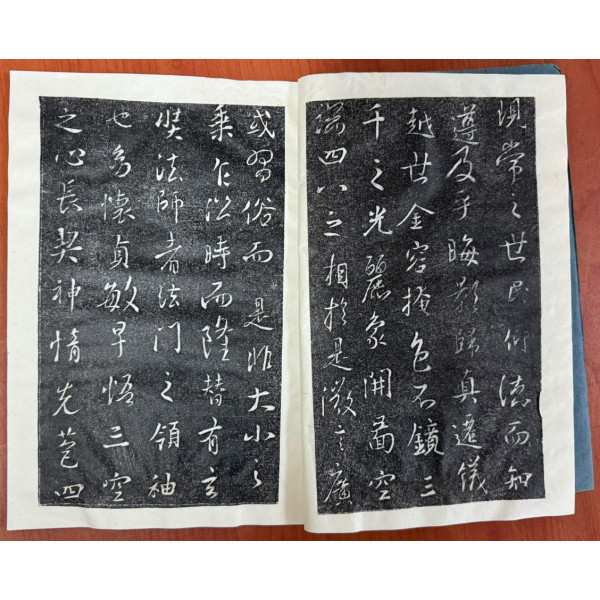 現常之世民仰德而知
遵及乎晦影歸真遷儀
越世金容掩色不鏡三
千之光麗象開圖空
端四八之相於是微言廣
或習俗而是非大小之
乘乍沿時而隆替有玄
奘法師者法門之領袖
也幼懷貞敏早悟三空
之心長契神情先苞四